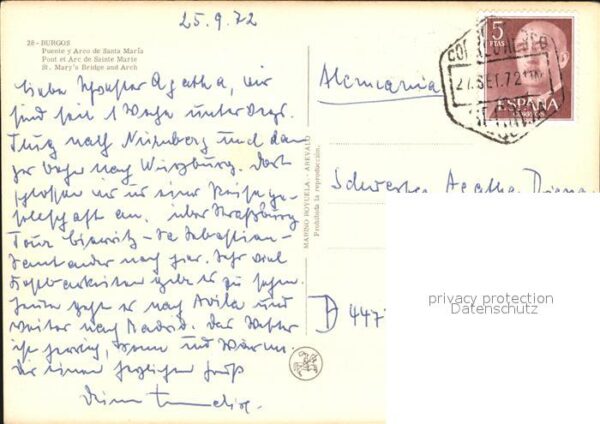 25.9.72
28 - BURGOS
Puente y Arco de Santa María
Pont et Arc de Sainte Marie
St. Mary's Bridge and Arch
Liebe Schwester Agatha, wir
sind seit 1 Woche unterwegs.
nach Nürnberg und dann
zur Bahn nach Würzburg. Dort
schlossen wir uns einer Reisege-
sellschaft an. über Straßburg
Tour Biarritz - Sa Sebastian -
Santander nach hier. Sehr viel
gibt es zu sehen.
Heute geht es nach Avila und
weiter nach Madrid. Das Wetter
ist herrlich, Sonne und warm.
Dir einen herzlichen Gruß
Deine
MARINO ROYUELA - AREVALO
Prohibida la reproducción.
5
PTAS
ESPAÑA
CORREOS
CORREO AEREO
27.SET.72
Alemania
Schwester Agatha
D 447
privacy protection
Datenschutz